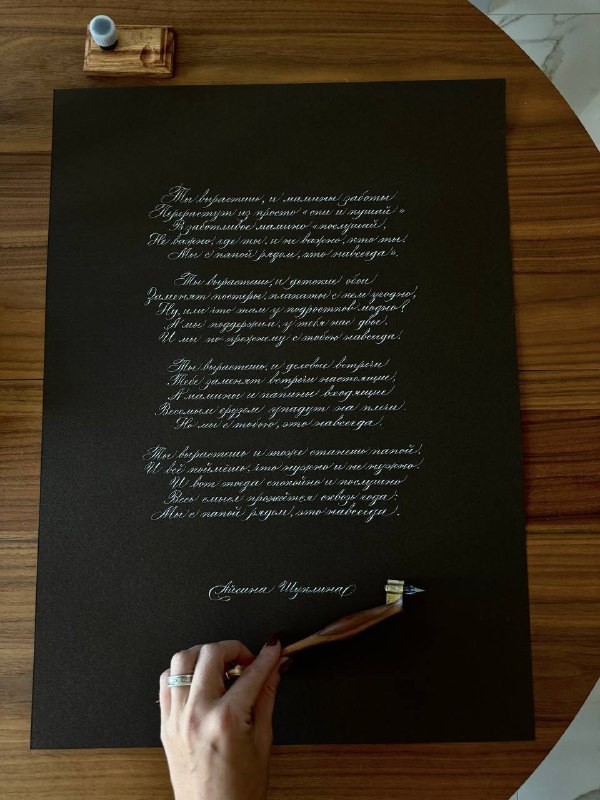 Ты вырастешь, и мамины заботы
Перерастут из просто «спи и кушай»
В заботливое мамино «послушай,
Не важно, где ты, и не важно, кто ты!
Мы с папой рядом, это навсегда».
Ты вырастешь, и детские обои
Заменят постеры, плакаты с кем угодно,
Ну, или что там у подростков модно?
А мы поддержим, у тебя нас двое.
И мы по прежнему с тобою навсегда!
Ты вырастешь, и деловые встречи
Тебе заменят встречи настоящие,
А мамины и папины входящие
Веселым грузом упадут на плечи.
Но мы с тобою, это навсегда.
Ты вырастешь и тоже станешь папой!
И всё поймёшь, что нужно и не нужно.
И вот тогда спокойно и послушно
Весь смысл прожжётся сквозь года:
Мы с папой рядом, это навсегда.
Айсина Шуклина